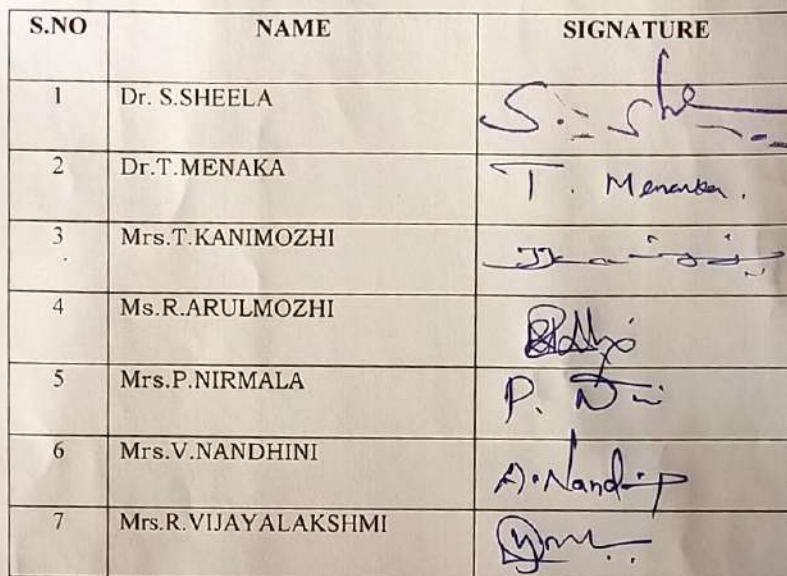 S.NO NAME SIGNATURE
1 Dr. S.SHEELA
2 Dr.T.MENAKA T. Menaka.
3 Mrs.T.KANIMOZHI
4 Ms.R.ARULMOZHI
5 Mrs.P.NIRMALA
6 Mrs.V.NANDHINI
7 Mrs.R.VIJAYALAKSHMI